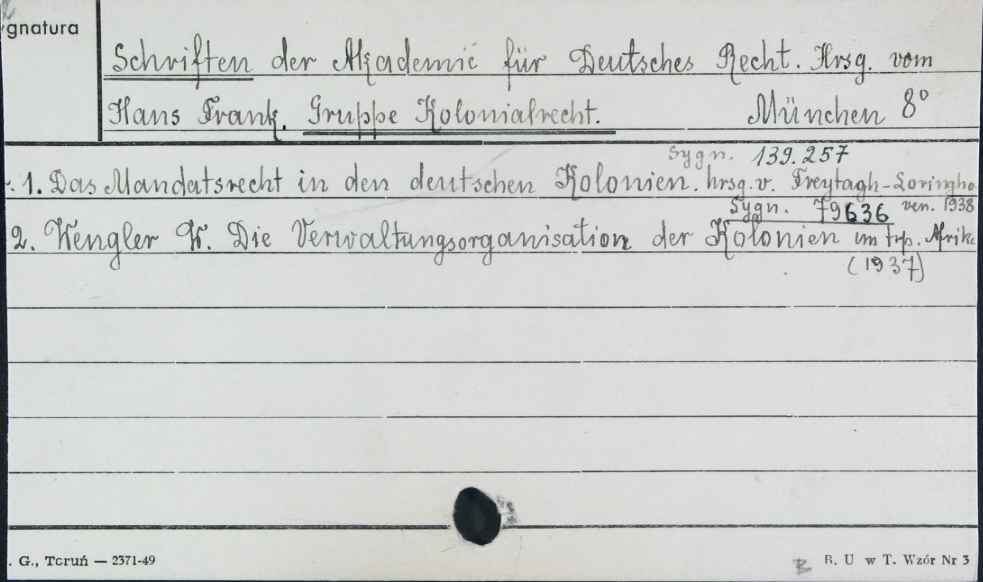 gnatura
Schriften der Akademie für Deutsches Recht. Hrsg. vom
Hans Frank. Gruppe Kolonialrecht. München 8°
Sygn. 139.257
1. Das Mandatsrecht in den deutschen Kolonien. hrsg. v. Freytagh-Loringho
Sygn. 79636 ven. 1938
2. Wengler W. Die Verwaltungsorganisation der Kolonien im trp. Afrika
(1937)
. G., Toruń — 2371-49
B. U w T. Wzór Nr 3